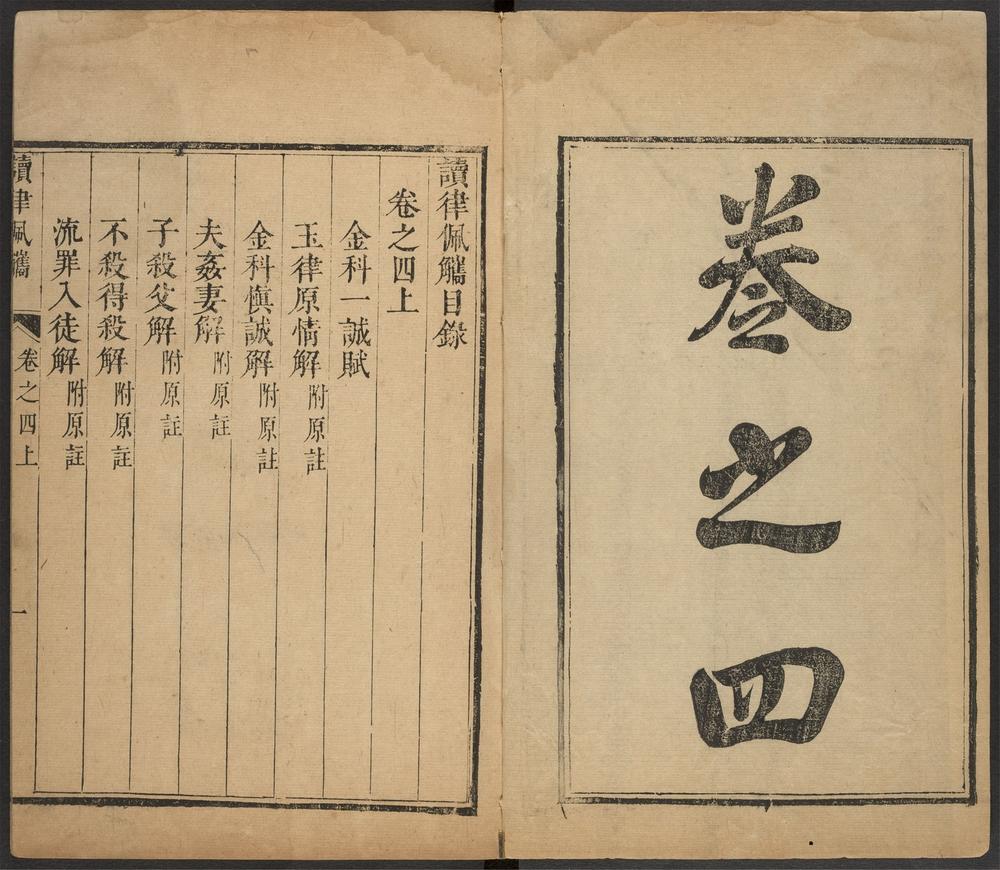 卷之四
讀律佩觿目錄
卷之四上
金科一誠賦
玉律原情解 附原註
金科慎誠解 附原註
夫姦妻解 附原註
子殺父解 附原註
不殺得殺解 附原註
流罪入徒解 附原註
讀律佩觿 卷之四上 一